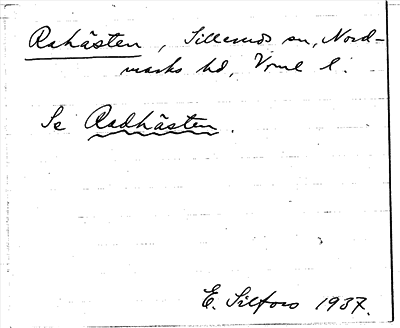 Rahästen, Silleruds sn, Nord-
marks hd, Vrml l.
Se Radhästen.
E. Silfors 1937.